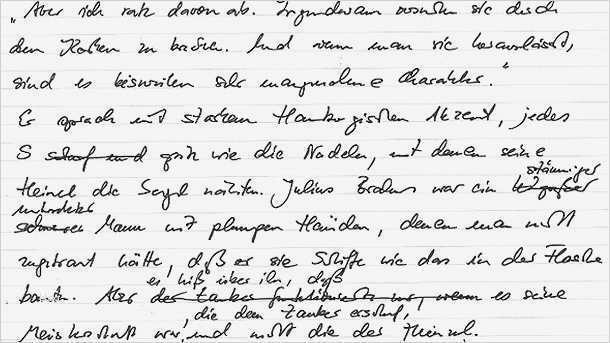 „Aber ich rate davon ab. Irgendwann versuchen sie durch
den Korken zu brechen. Und wenn man sie herauslässt,
sind es bisweilen sehr unangenehme Charaktere."
Er sprach mit starkem Hamburgischen Akzent, jedes
S scharf und spitz wie die Nadeln, mit denen seine
stämmiger
Heinzel die Segel nähten. Julius Brahms war ein
untersetzter
Mann mit plumpen Händen, denen man nicht
zugetraut hätte, daß er die Schiffe wie das in der Flasche
es hieß über ihn, daß
baute. Aber der Zauber funktionierte nur, wenn es seine
, die den Zauber erschuf,
Meisterschaft war, und nicht die der Heinzel.